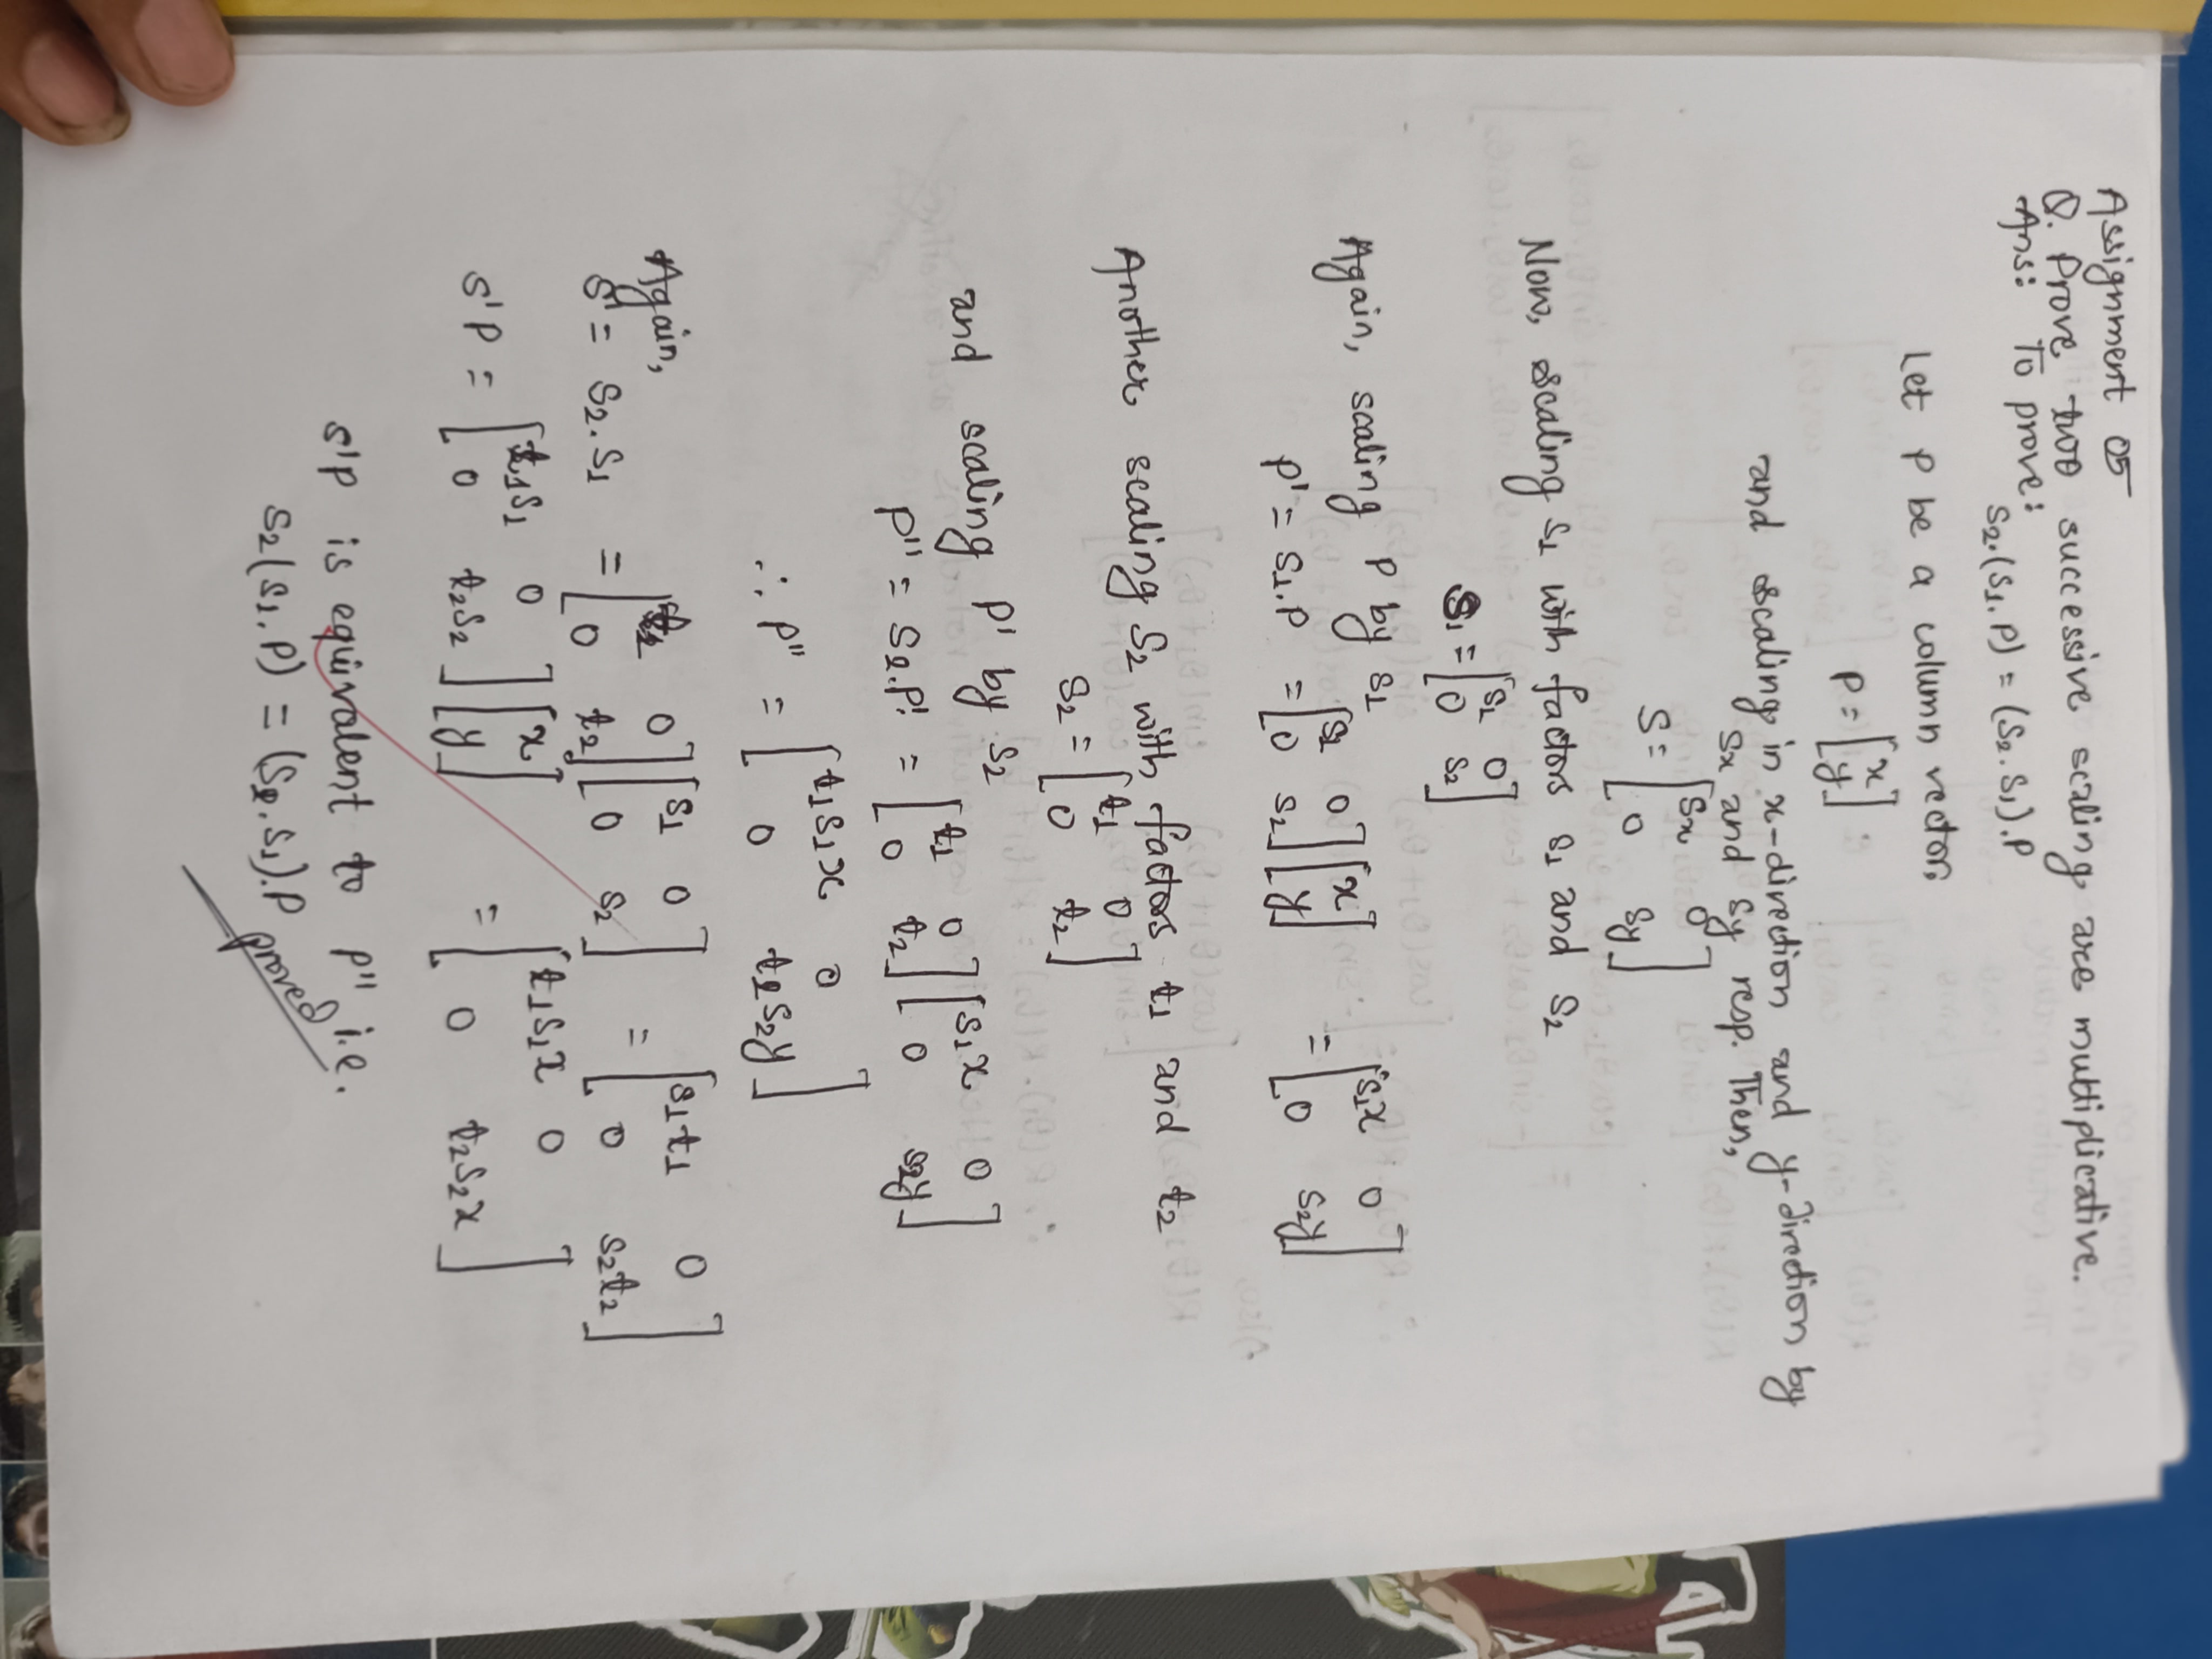 Assignment 05
Q. Prove two successive scaling are multiplicative.
Ans: To prove:
S2.(S1.P) = (S2.S1).P
Let P be a column vector,
P = [x
y]
and scaling in x-direction and y-direction by
Sx and Sy resp. Then,
S = [Sx 0
0 Sy]
Now, scaling S1 with factors s1 and s2
S1 = [s1 0
0 s2]
Again, scaling P by S1
P' = S1.P = [s1 0
0 s2] [x
y] = [s1x 0
0 s2y]
Another scaling S2 with factors t1 and t2
S2 = [t1 0
0 t2]
and scaling P' by S2
P'' = S2.P' = [t1 0
0 t2] [s1x 0
0 s2y]
∴ P'' = [t1s1x 0
0 t2s2y]
Again,
S' = S2.S1 = [ 0
0 t2] [s1 0
0 s2] = [s1t1 0
0 s2t2]
S'P = [t1s1 0
0 t2s2] [x
y] = [t1s1x 0
0 t2s2x]
S'P is equivalent to P'' i.e.
S2(S1.P) = (S2.S1).P proved